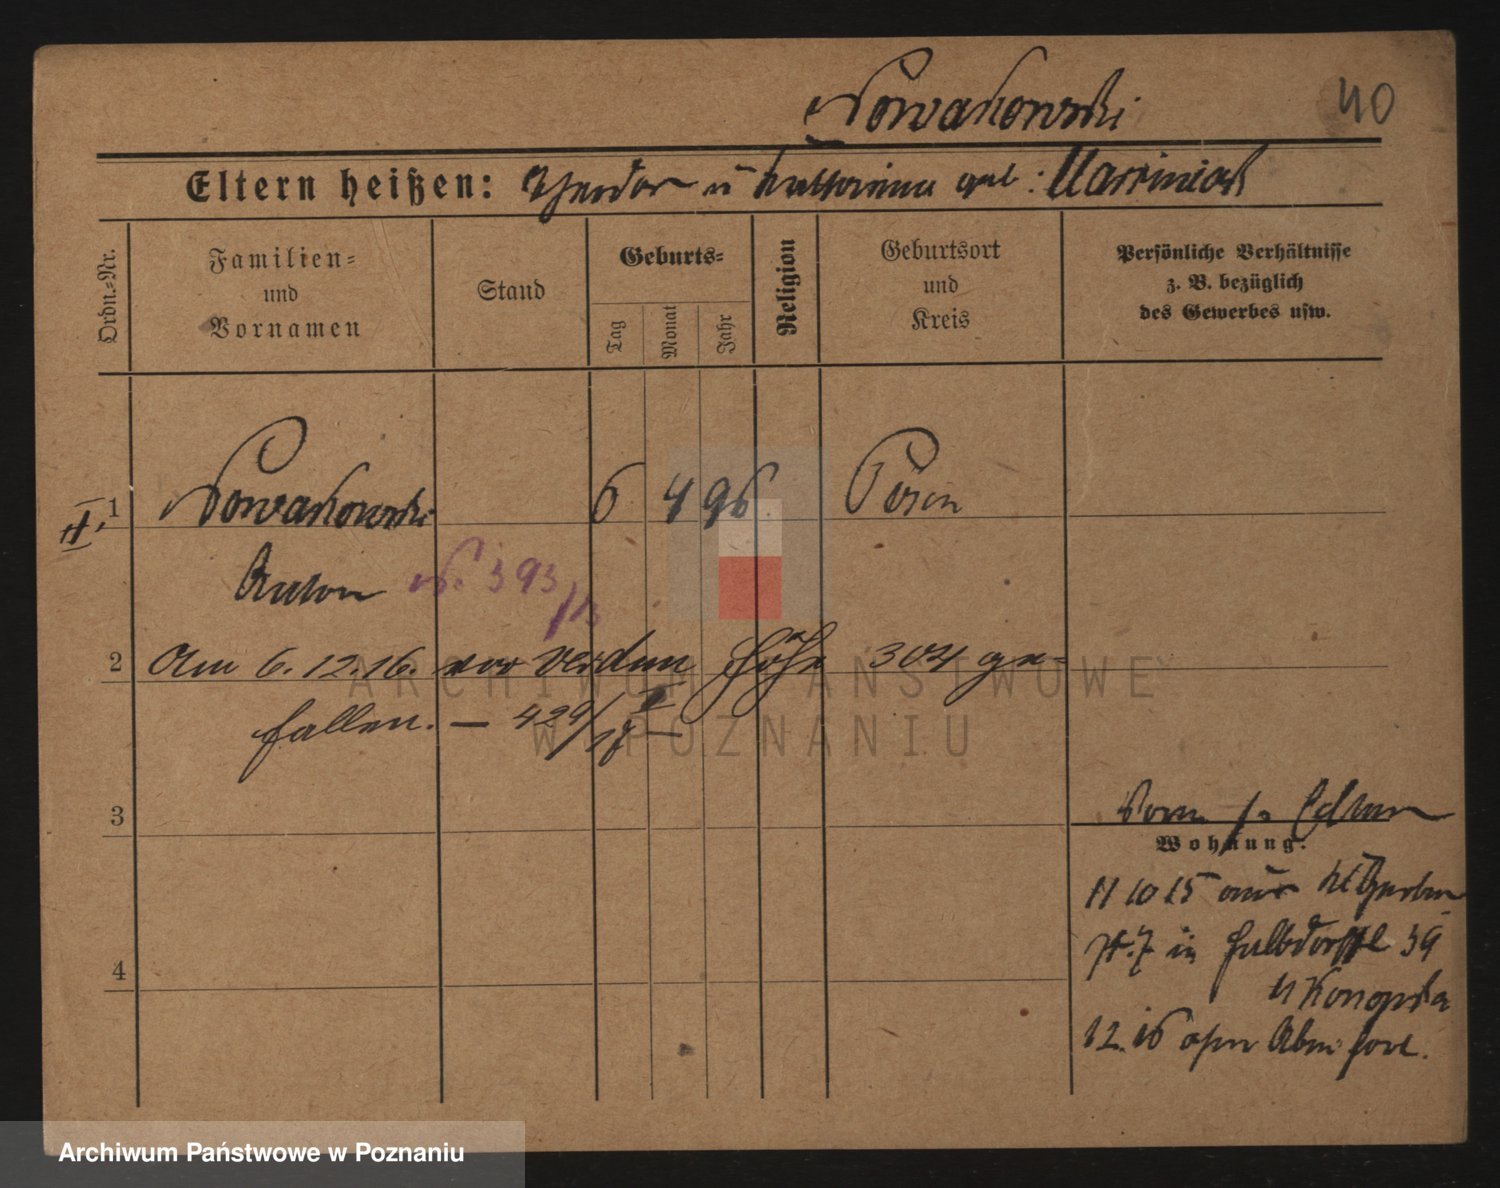 Nowakowski 40
Eltern heißen: Theodor u Katharina geb: Marciniak
Ordn.-Nr.
Familien-
und
Vornamen
Stand
Geburts-
Tag
Monat
Jahr
Religion
Geburtsort
und
Kreis
Persönliche Verhältnisse
z. B. bezüglich
des Gewerbes usw.
II. 1 Nowakowski 6 4 96 Posen
Anton N. 393/13
2 Am 6.12.16. vor Verdun Höhe 304 ge-
fallen. — 429/18
3
4
Wohnung:
11 10 15 aus
in Halbdorfstr 39
12.16 ohne Abm fort.
ARCHIWUM PAŃSTWOWE
W POZNANIU
Archiwum Państwowe w Poznaniu